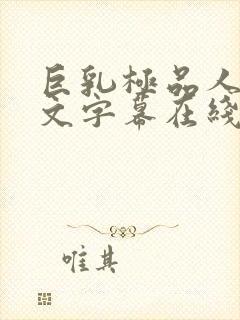 巨乳極品人
文字幕在綫
唯其